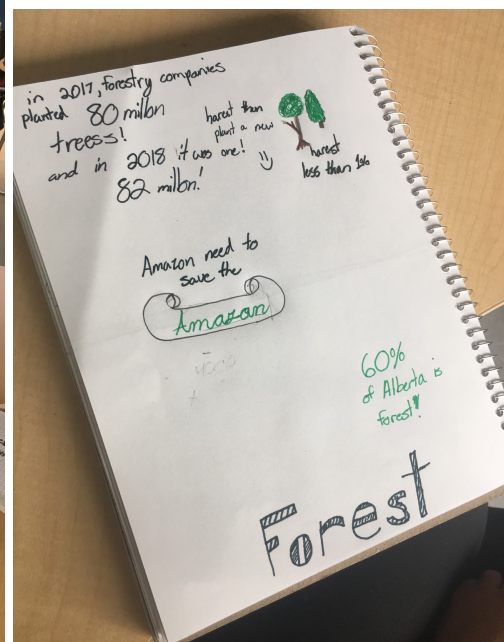 in 2017, forestry companies
planted 80 millon
treess!
and in 2018 it was
82 millon!
harest than
plant a new
one!
harest
less than 1%
Amazon need to
save the
Amazon
60%
of Alberta is
forest!
Forest